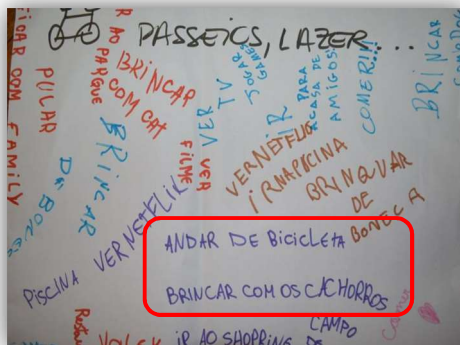 PASSEIOS, LAZER...
FICAR COM FAMILY
PULAR
IR AO PARQUE
BRINCAR
COM CAT
VER
TV
VER
FILME
JOGAR
GAMES
IR
PARA
A CASA DE
AMIGOS!
COMER!!!
BRINCAR
BRINCAR
DE BONEC
VER NETFLIX
VERNETFLIX
IR NAPICINA
BRINQUAR
DE
BONECA
PISCINA
ANDAR DE BICICLETA
BRINCAR COM OS CACHORROS
IR AO SHOPPING
CAMPO
DE